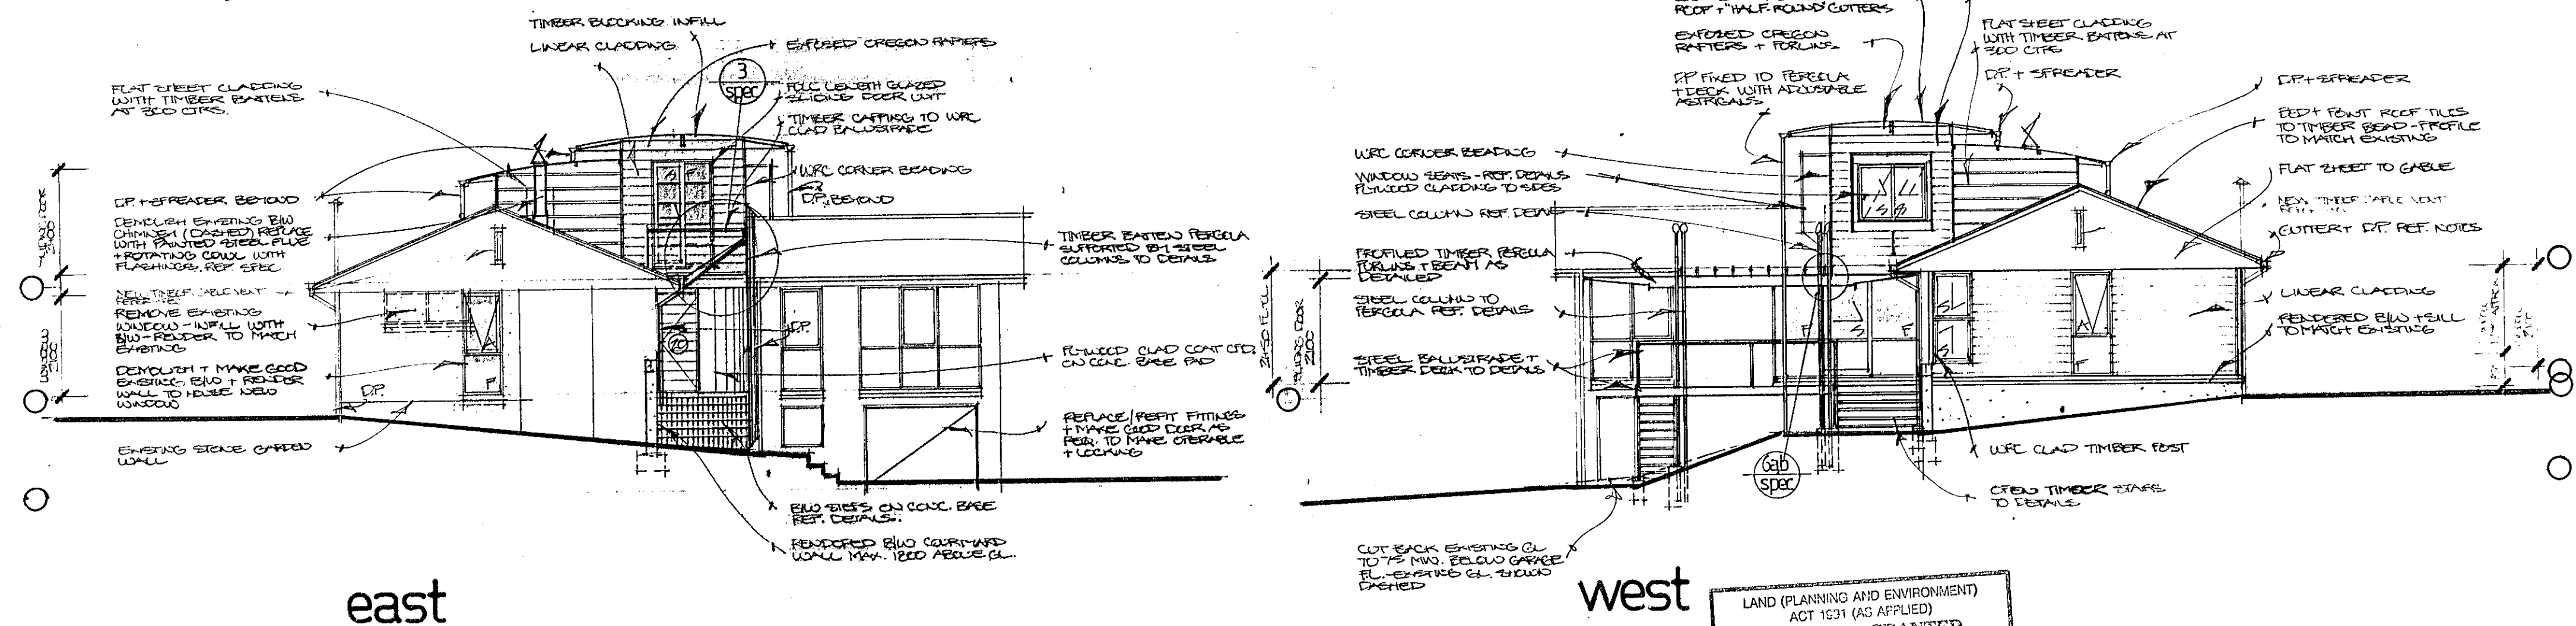 TIMBER BLOCKING INFILL
LINEAR CLADDING
EXPOSED OREGON RAFTERS
3
spec
FLAT SHEET CLADDING
WITH TIMBER BATTENS
AT 300 CTRS.
FULL LENGTH GLAZED
SLIDING DOOR UNIT
TIMBER CAPPING TO WRC
CLAD BALUSTRADE
WRC CORNER BEADING
D.P. BEYOND
D.P. + SPREADER BEYOND
DEMOLISH EXISTING B/W
CHIMNEY (DASHED) REPLACE
WITH PAINTED STEEL FLUE
+ ROTATING COWL WITH
FLASHINGS, REF SPEC
TIMBER BATTEN PERGOLA
SUPPORTED BY STEEL
COLUMNS TO DETAILS
NEW TIMBER GABLE VENT
REMOVE EXISTING
WINDOW - INFILL WITH
B/W - RENDER TO MATCH
EXISTING
DEMOLISH + MAKE GOOD
EXISTING B/W + RENDER
WALL TO HOUSE NEW
WINDOW
WINDOW
2100
D.P.
A
F
S F
20
D.P.
PLYWOOD CLAD COAT CPD.
ON CONC. BASE PAD
REPLACE/REFIT FITTINGS
+ MAKE GOOD DOOR AS
REQ. TO MAKE OPERABLE
+ LOCKING
EXISTING STONE GARDEN
WALL
B/W STEPS ON CONC. BASE
REF. DETAILS.
RENDERED B/W COURTYARD
WALL MAX. 1800 ABOVE GL.
east
ROOF + "HALF ROUND" GUTTERS
EXPOSED OREGON
RAFTERS + PURLINS
DP FIXED TO PERGOLA
+ DECK WITH ADJUSTABLE
ASTRIGALS
FLAT SHEET CLADDING
WITH TIMBER BATTENS AT
300 CTRS
D.P. + SPREADER
D.P. + SPREADER
BED + POINT ROOF TILES
TO TIMBER BEAD - PROFILE
TO MATCH EXISTING
FLAT SHEET TO GABLE
NEW TIMBER GABLE VENT
GUTTER + D.P. REF. NOTES
LINEAR CLADDING
RENDERED B/W + SILL
TO MATCH EXISTING
WRC CORNER BEADING
WINDOW SEATS - REF. DETAILS
PLYWOOD CLADDING TO SIDES
STEEL COLUMN REF. DETAILS
PROFILED TIMBER PERGOLA
PURLINS + BEAM AS
DETAILED
STEEL COLUMN TO
PERGOLA REF. DETAILS
STEEL BALUSTRADE +
TIMBER DECK TO DETAILS
2100
S S
F
S
F
S
S
A
F
WRC CLAD TIMBER POST
OPEN TIMBER STAIRS
TO DETAILS
6ab
spec
CUT BACK EXISTING GL
TO 75 MIN. BELOW GARAGE
FL. - EXISTING GL. SHOWN
DASHED
west
LAND (PLANNING AND ENVIRONMENT)
ACT 1991 (AS APPLIED)
GRANTED